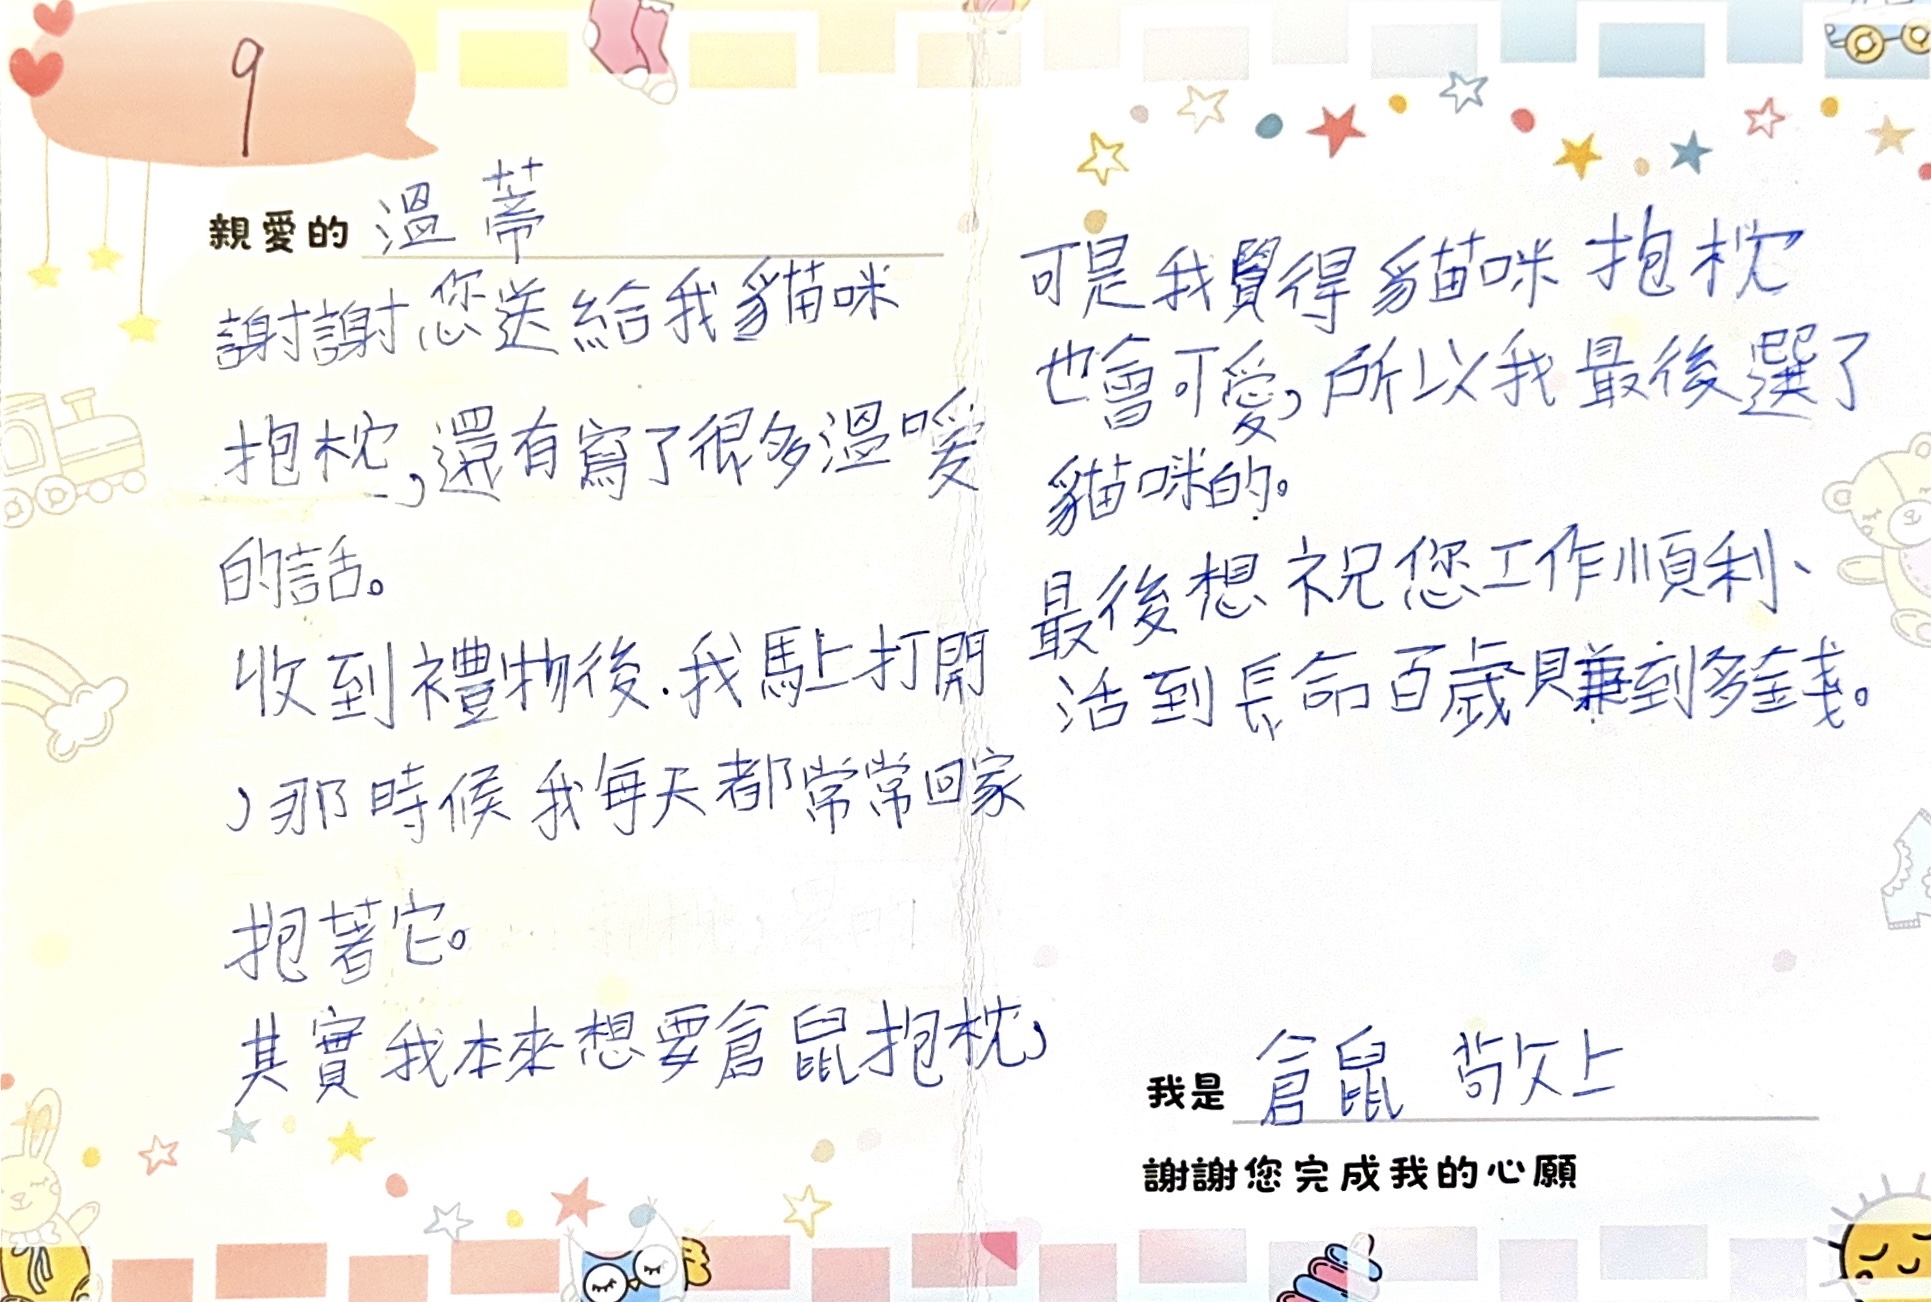 9
親愛的 溫蒂
謝謝您送給我貓咪
抱枕,還有寫了很多溫暖
的話。
收到禮物後.我馬上打開
,那時候我每天都常常回家
抱著它。
其實我本來想要倉鼠抱枕,
可是我覺得貓咪抱枕
也會可愛,所以我最後選了
貓咪的。
最後想祝您工作順利、
活到長命百歲賺到多金錢。
我是 倉鼠 敬上
謝謝您完成我的心願